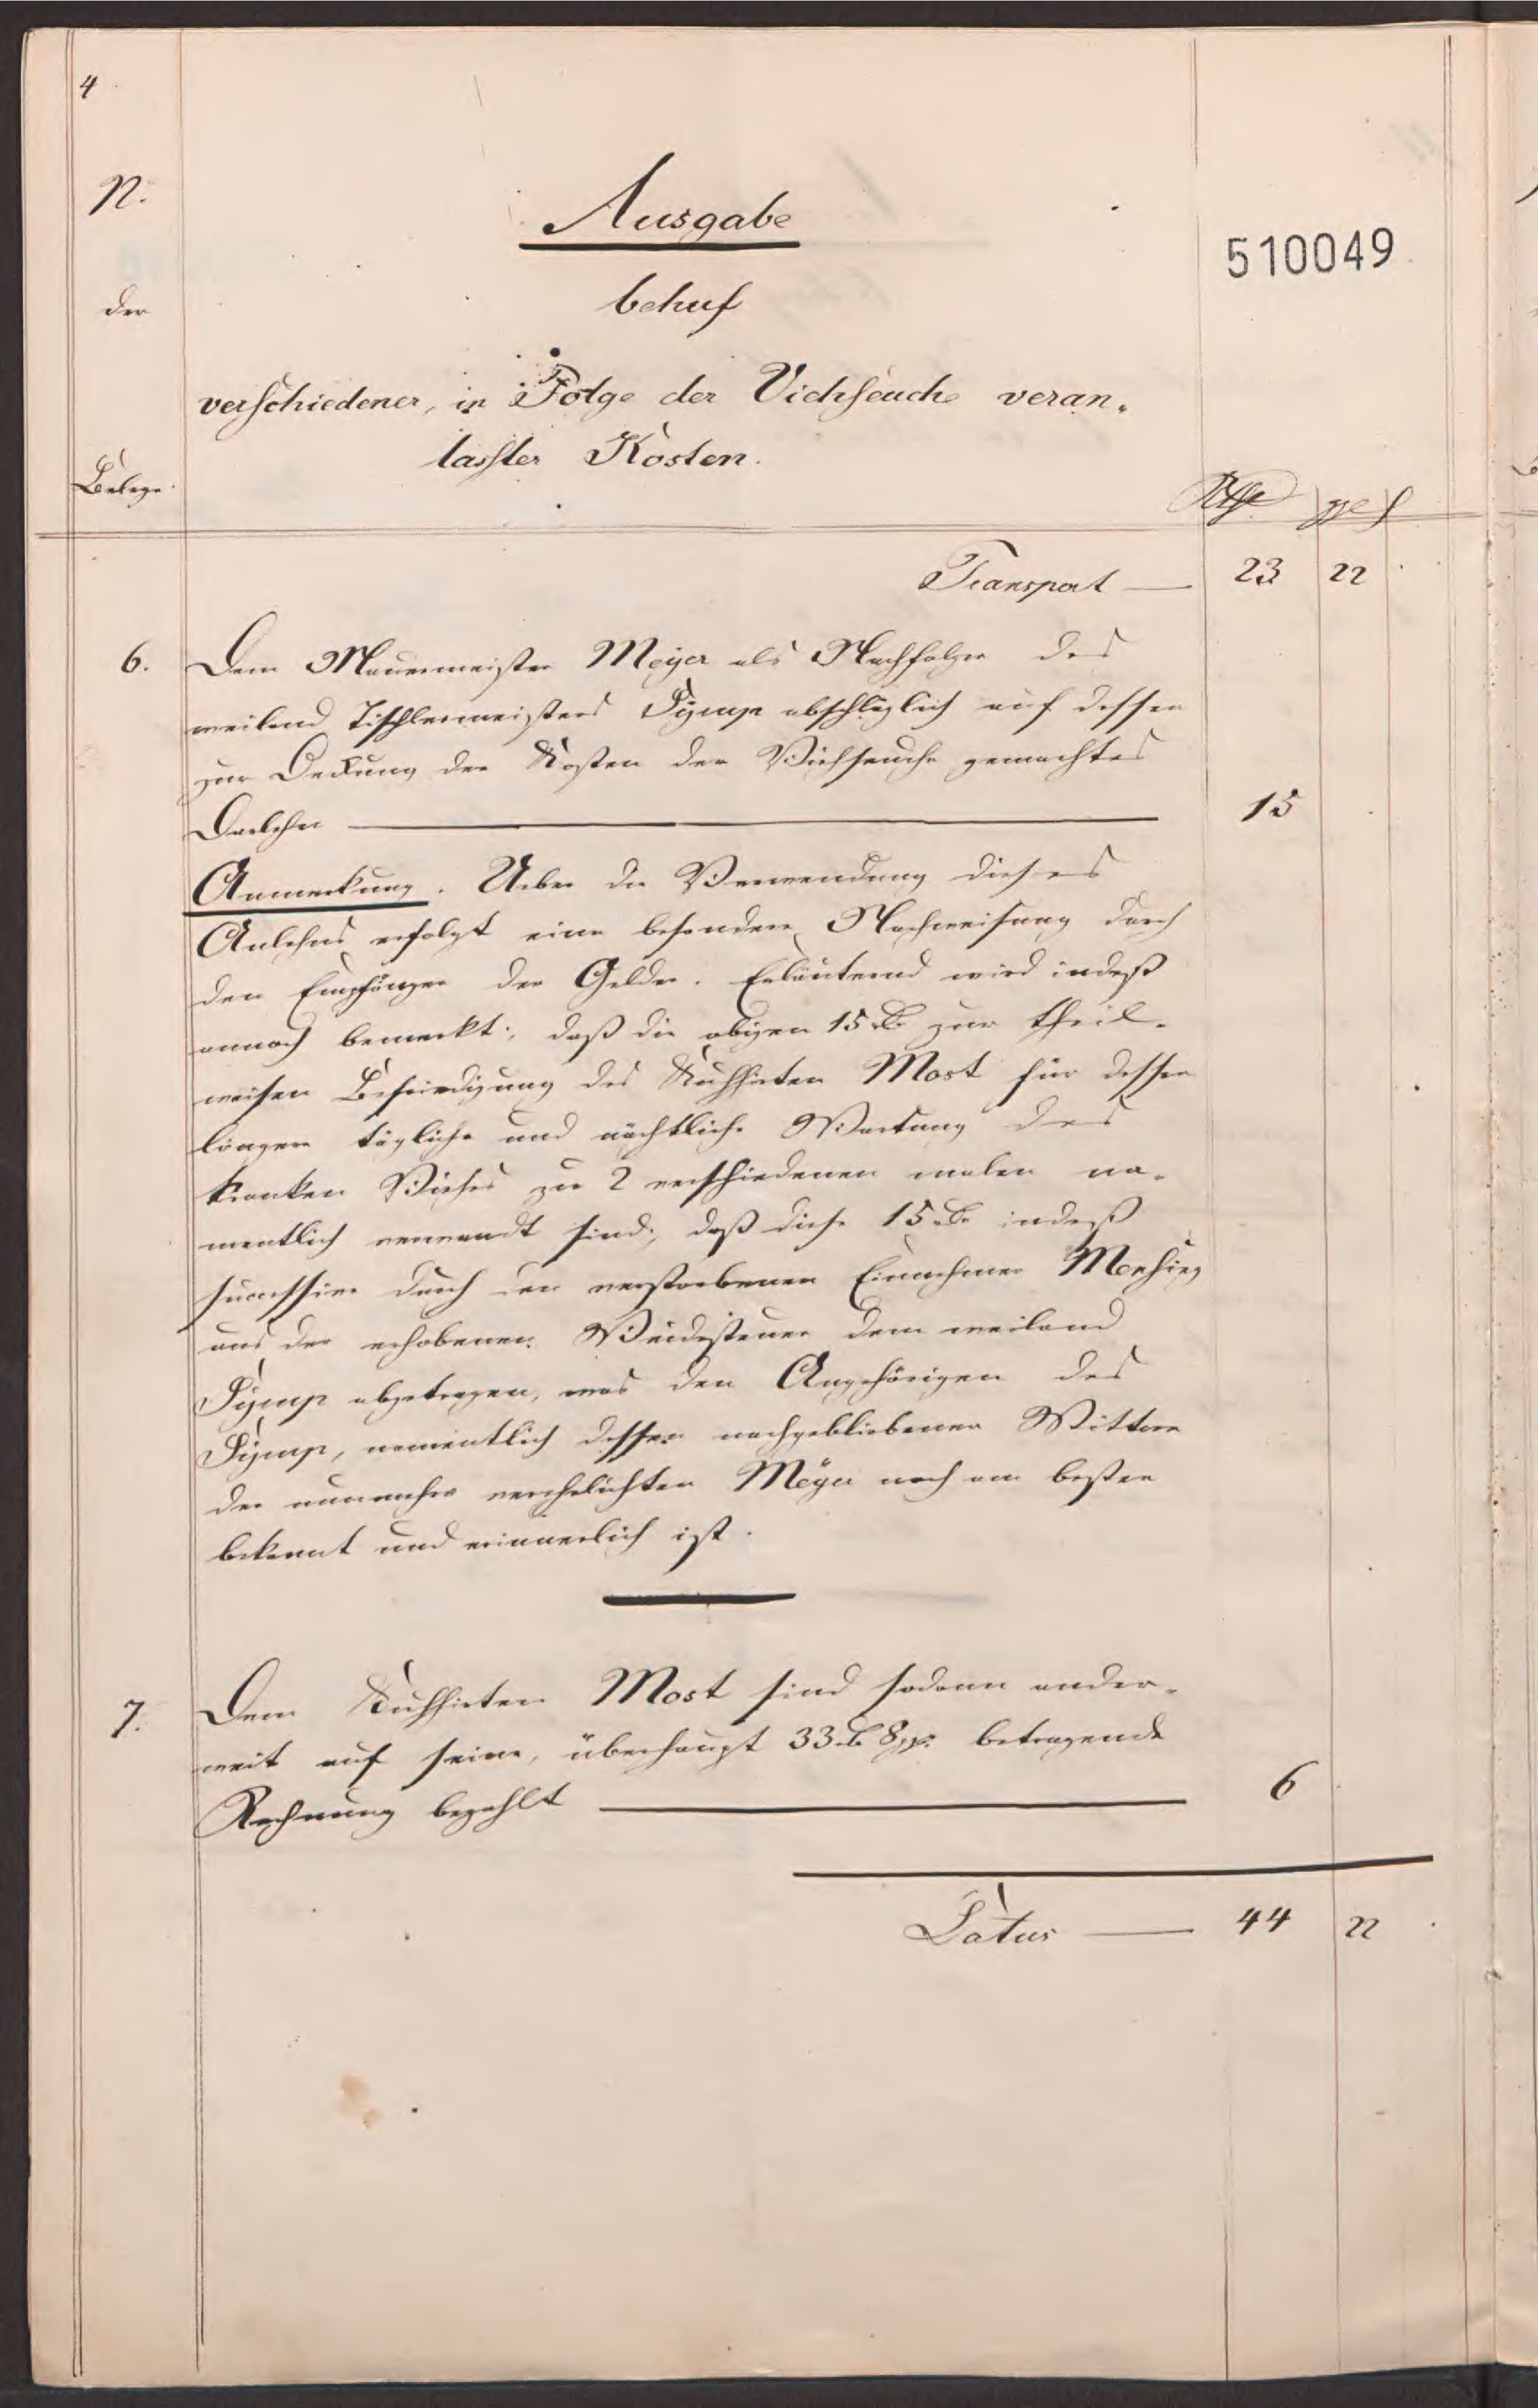 4
N.
Ausgabe
510049
der
behuf
verschiedener, in Folge der Viehseuche veran„
lasster Kosten.
Belege.
Rthlr ggr ₰
Transport — 23 22
6. Dem Mauermeister Meyer als Nachfolger des
weiland Tischlermeisters Symp abschläglich auf dessen
zur Deckung der Kosten der Viehseuche gemachtes
Darlehn — 15
Anmerkung. Ueber die Verwendung dieses
Anlehns erfolgt eine besondere Nachweisung durch
den Empfänger der Gelder. Erläuternd wird indeß
annoch bemerkt; daß die obigen 15 rl zur theil-
weisen Befriedigung des Kuhhirten Most für dessen
längere tägliche und nächtliche Wartung des
kranken Viehes zu 2 verschiedenen malen na-
mentlich verwandt sind; daß diese 15 rl indeß
successive durch den verstorbenen Einnehmer Mensing
aus der erhobenen Weidesteuer dem weiland
Symp abgetragen, was den Angehörigen des
Symp, namentlich dessen nachgebliebener Wittwe
der nunmehr verehelichten Meyer noch am besten
bekannt und erinnerlich ist.
7. Dem Kuhhirten Most sind sodann ander-
weit auf seine, überhaupt 33 rl 8 ggr betragende
Rechnung bezahlt — 6
Latus — 44 22